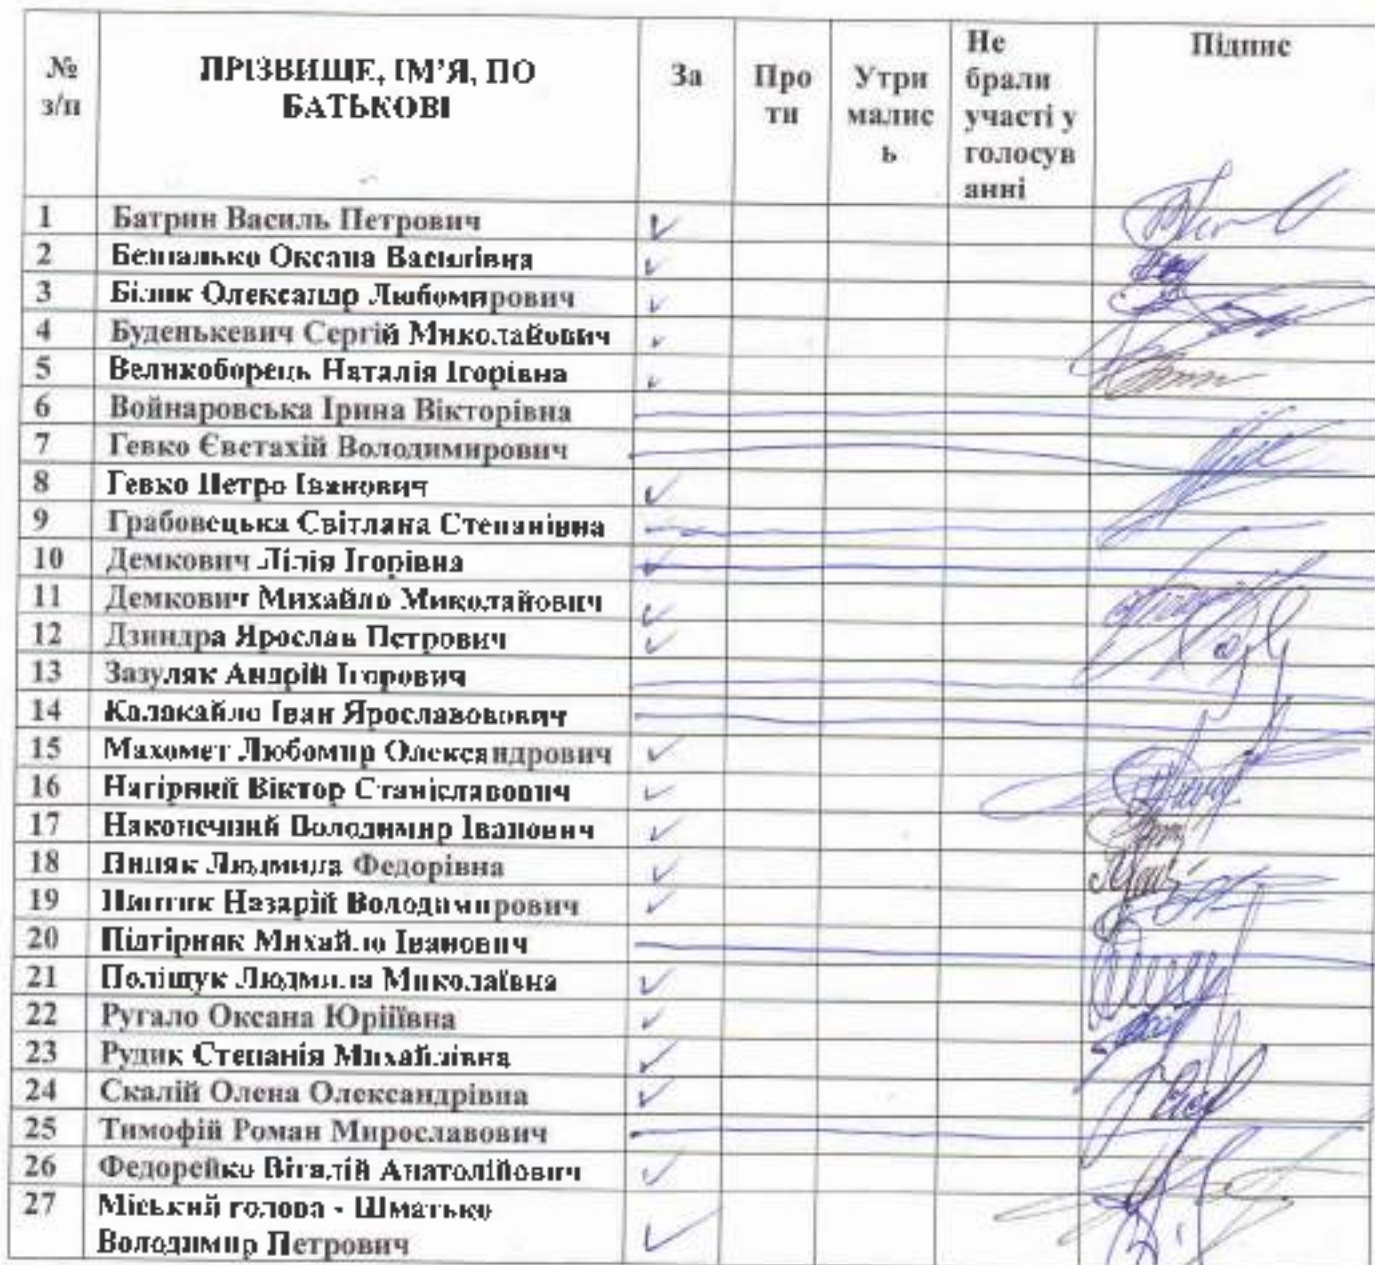 № з/п
ПРІЗВИЩЕ, ІМ’Я, ПО БАТЬКОВІ
За
Про
ти
Утри
малис
ь
Не
брали
участі у
голосув
анні
Підпис
1 Батрин Василь Петрович
2 Беншалько Оксана Василівна
3 Білик Олександр Любомирович
4 Буденькевич Сергій Миколайович
5 Великоборець Наталія Ігорівна
6 Войнаровська Ірина Вікторівна
7 Гевко Євстахій Володимирович
8 Гевко Петро Іванович
9 Грабовецька Світлана Степанівна
10 Демкович Лілія Ігорівна
11 Демкович Михайло Миколайович
12 Дзиндра Ярослав Петрович
13 Зазуляк Андрій Ігорович
14 Калакайло Іван Ярославовович
15 Махомет Любомир Олександрович
16 Нагірний Віктор Станіславович
17 Наконечний Володимир Іванович
18 Пиляк Людмила Федорівна
19 Назарій Володимирович
20 Підгірняк Михайло Іванович
21 Поліщук Людмила Миколаївна
22 Ругало Оксана Юріїївна
23 Рудик Степанія Михайлівна
24 Скалій Олена Олександрівна
25 Тимофій Роман Мирославович
26 Федорейко Віталій Анатолійович
27 Міський голова - Шматько
Володимир Петрович